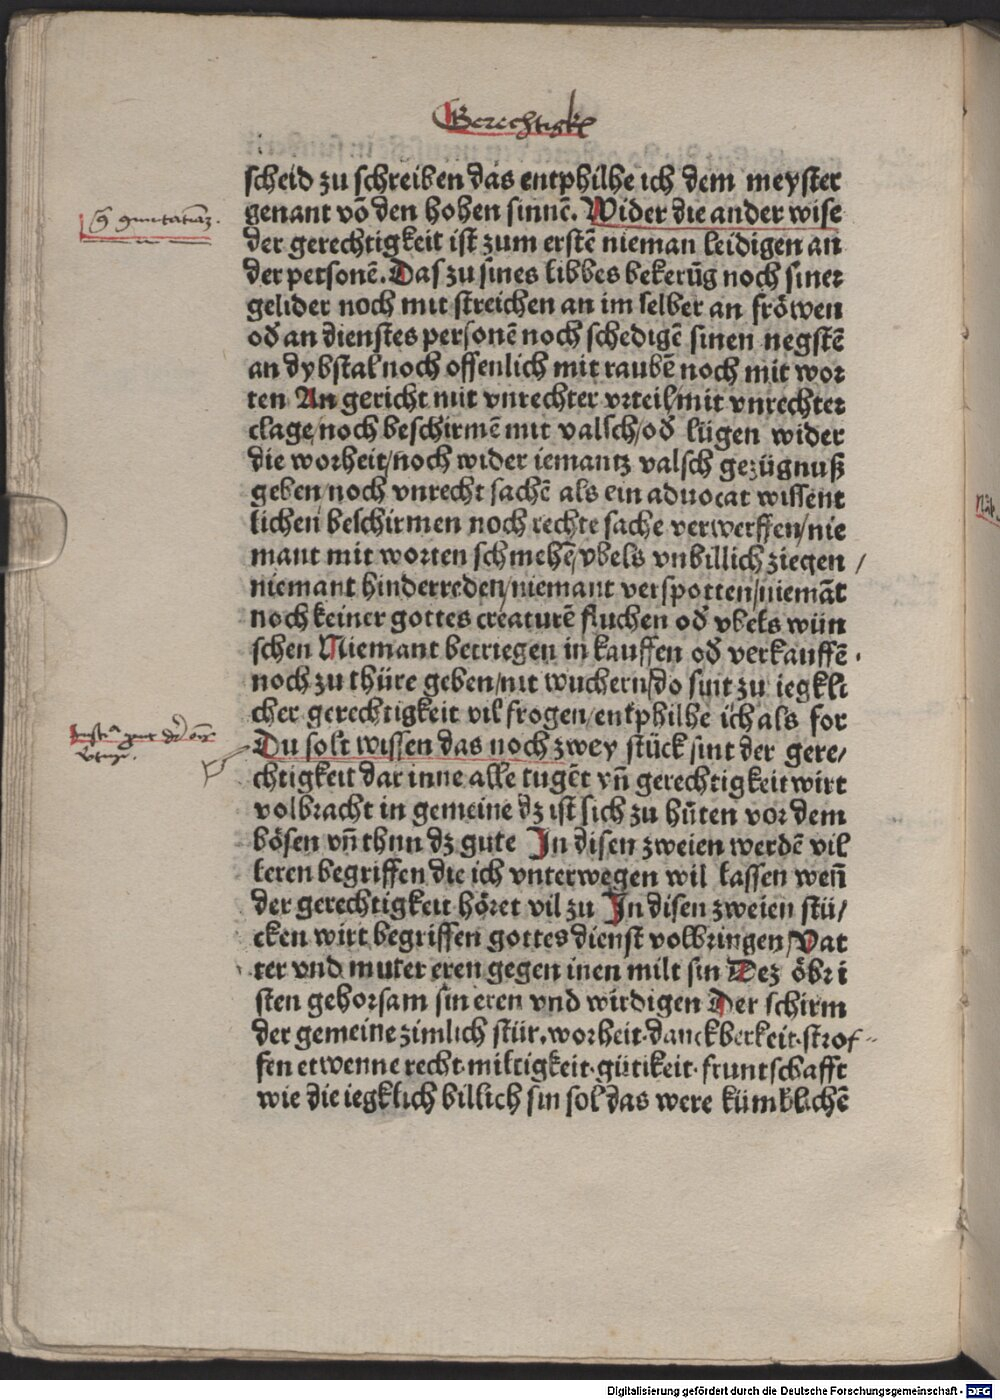 Gerechtigk
scheid zu schreiben das entphilhe ich dem meyster
genant vō den hohen sinnē. Wider die ander wise
der gerechtigkeit ist zum erstē nieman leidigen an
der personē. Das zu sines libbes bekerūg noch siner
gelider noch mit streichen an im selber an fröwen
od̄ an dienstes personē noch schedigē sinen negstē
an dybstal noch offenlich mit raubē noch mit wor
ten An gericht mit vnrechter vrteil/mit vnrechter
clage/noch beschirmē mit valsch/od̄ lügen wider
die worheit/noch wider iemantz valsch gezügnuß
geben/noch vnrecht sachē als ein aduocat wissent
lichen beschirmen noch rechte sache verwerffen/nie
mant mit worten schmehē/vbels vnbillich ziegen/
niemant hinderreden/niemant verspotten/niemāt
noch keiner gottes creaturē fluchen od̄ vbels wün
schen Niemant betriegen in kauffen od̄ verkauffē.
noch zu thüre geben/nit wuchern/do sint zu iegkli
cher gerechtigkeit vil frogen/entphilhe ich als for
Du solt wissen das noch zwey stück sint der gere/
chtigkeit dar inne alle tugēt vn̄ gerechtigkeit wirt
volbracht in gemeine dz ist sich zu hüten vor dem
bösen vn̄ thun dz gute In disen zweien werdē vil
leren begriffen die ich vnterwegen wil lassen wen̄
der gerechtigkeit höret vil zu In disen zweien stü/
cken wirt begriffen gottes dienst volbringen/Vat
ter vnd muter eren gegen inen milt sin Dez öbri
sten gehorsam sin eren vnd wirdigen Der schirm
der gemeine zimlich stür. worheit·danckberkeit·strof
fen etwenne recht·miltigkeit·gütikeit·fruntschafft
wie die iegklich billich sin sol das were kümlichē